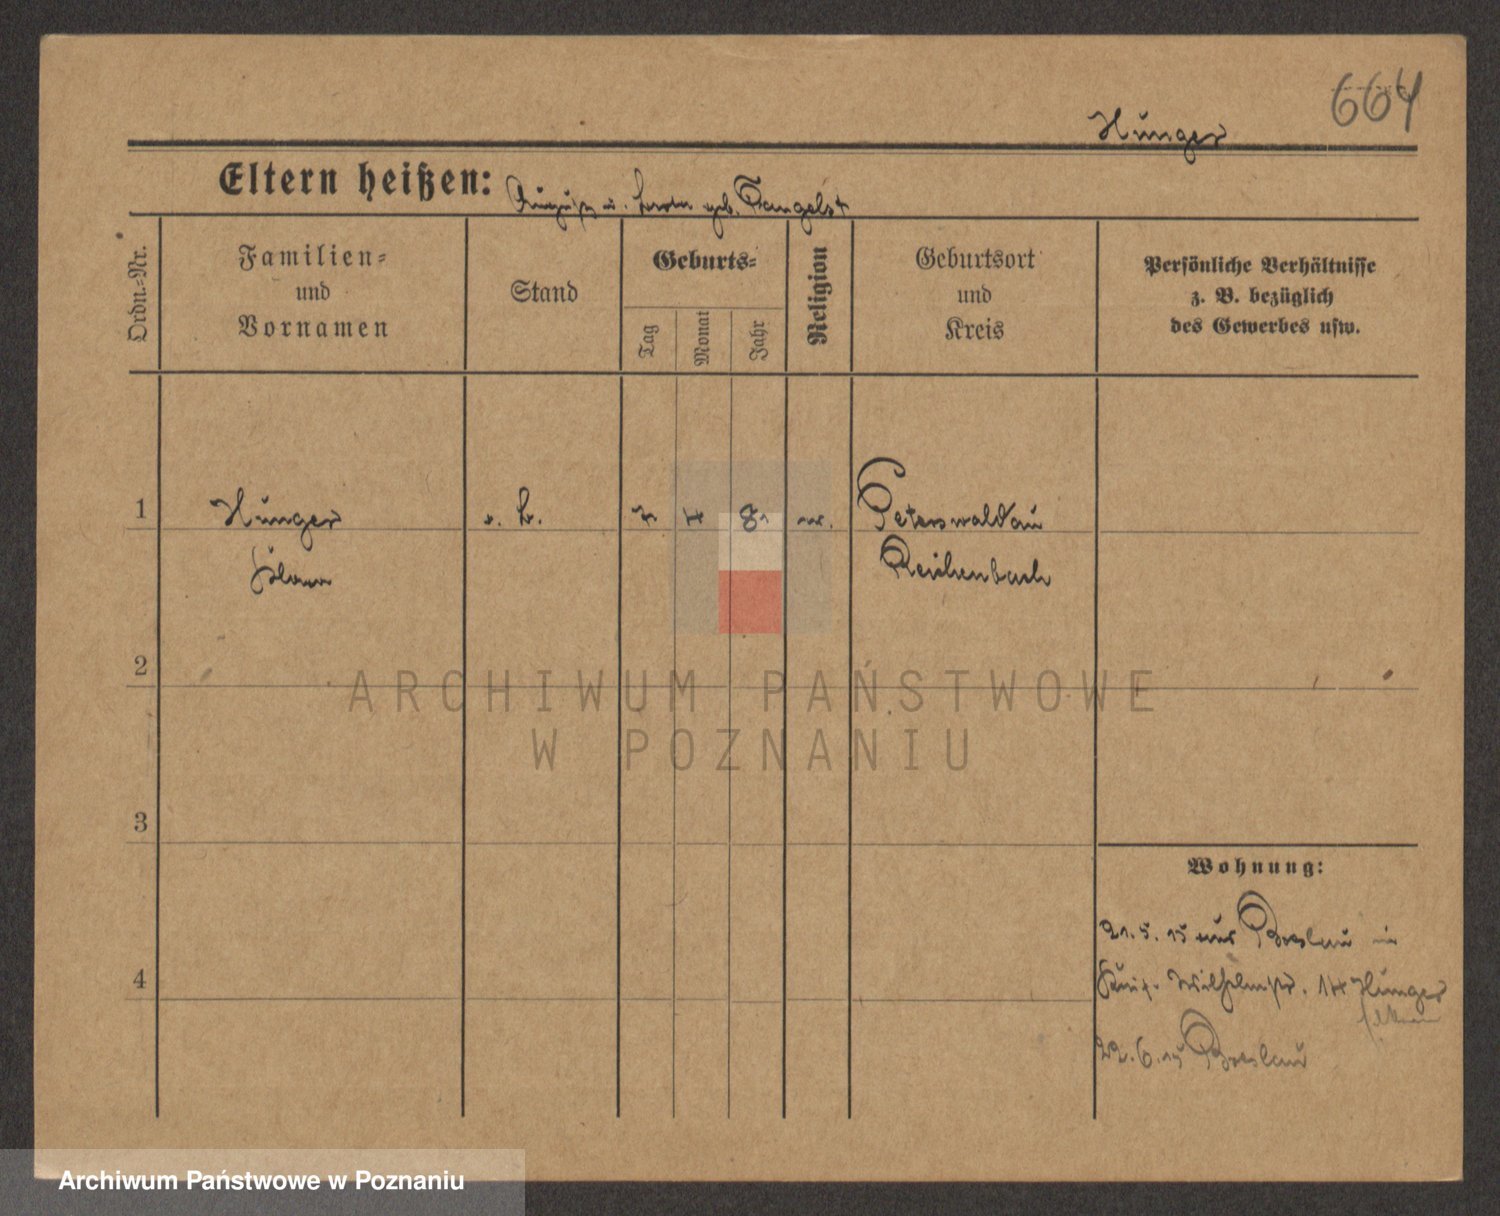 664
Hunger
Eltern heißen: August u. geb.
Ordn.-Nr.
Familien-
und
Vornamen
Stand
Geburts-
Tag
Monat
Jahr
Religion
Geburtsort
und
Kreis
Persönliche Verhältnisse
z. B. bezüglich
des Gewerbes usw.
1 Hunger 7 4 Peterswaldau
Reichenbach
2
3
4
Wohnung:
21.5.15 aus Breslau in
Wilhelmstr. 14 Hunger
22.6.15 Breslau
ARCHIWUM PAŃSTWOWE
W POZNANIU
Archiwum Państwowe w Poznaniu